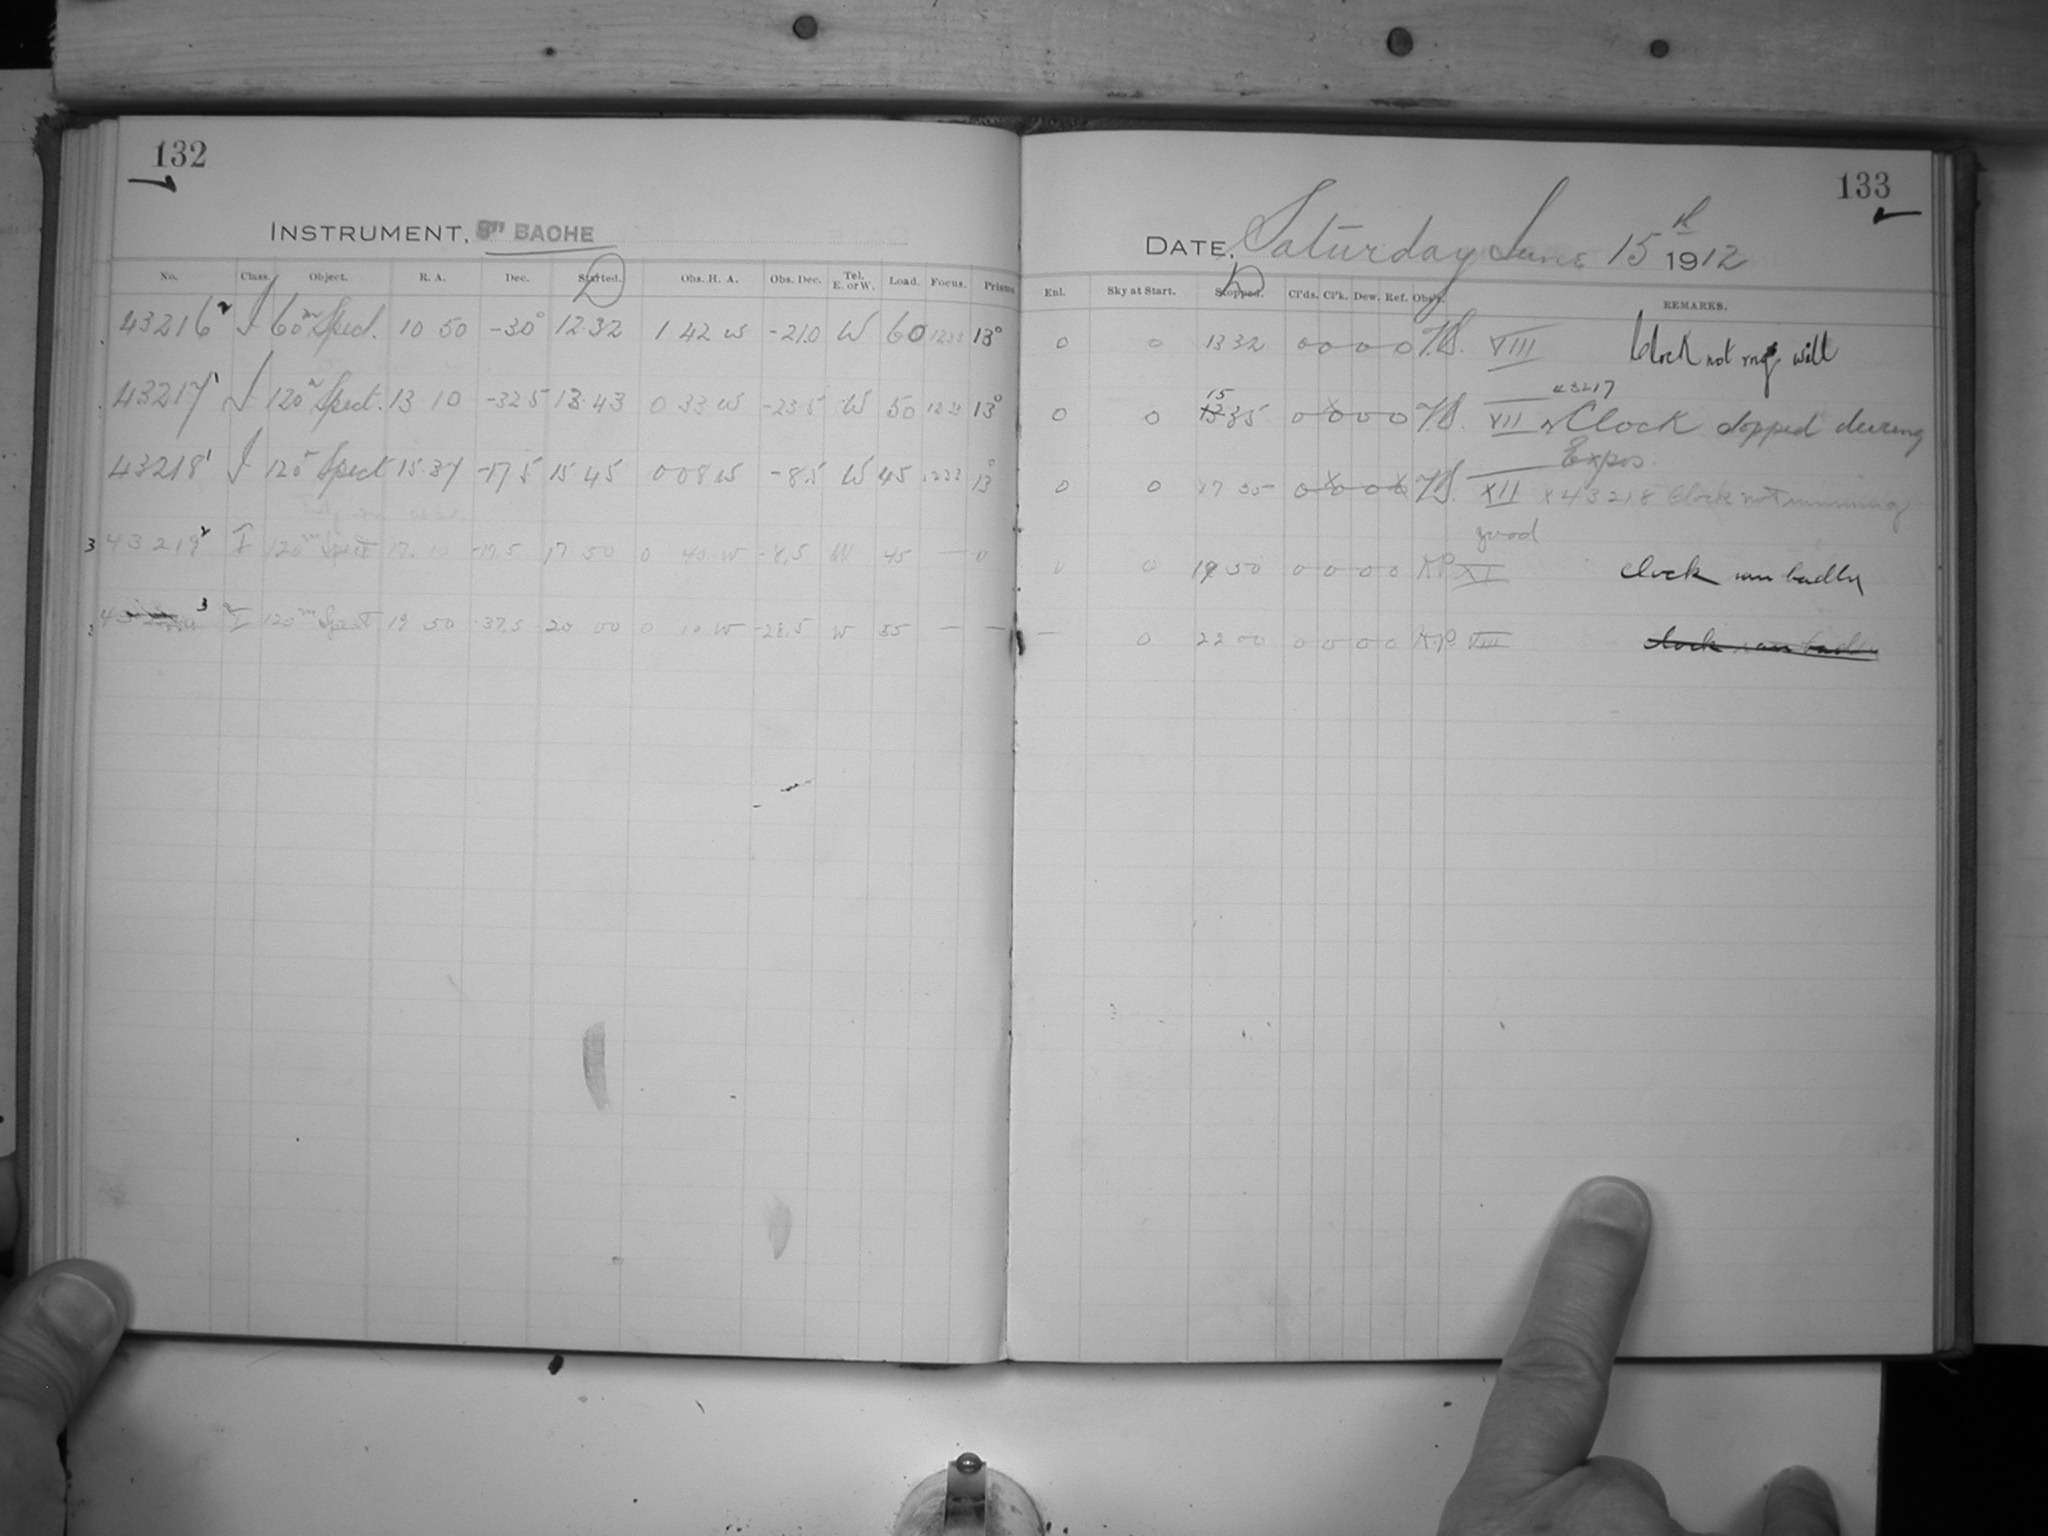 132
INSTRUMENT, 8" BACHE
No. Class. Object. R. A. Dec. Started. Obs. H. A. Obs. Dec. Tel. E. or W. Load. Focus. Prisms
43216² I 60ᵐ Spect. 10 50 -30° 12.32 1 42 W -21.0 W 60 13°
43217¹ I 120ᵐ Spect. 13 10 -32.5 13.43 0 33 W -23.5 W 50 13°
43218¹ I 120ᵐ Spect 15.37 -17.5 15 45 0 08 W -8.5 W 45 1233 13°
3 43219² I 120ᵐ Spect 17.10 -17.5 17 50 0 40 W -8.5 W 45 — 0
3 I 120ᵐ Spect 19 50 -37.5 20 00 0 10 W -28.5 W 55 — —
133
DATE, Saturday June 15th 1912
Enl. Sky at Start. Stopped. Cl'ds. Cl'k. Dew. Ref. Obs'r. REMARKS.
0 0 1332 0 0 0 0 VIII Clock not rng well
43217
0 0 15 35 0 0 0 0 VII Clock stopped during
Expos.
0 0 17 55 0 0 0 0 XII x 43218 Clock not running
good
0 0 19 50 0 0 0 0 XI clock ran badly
— 0 22 00 0 0 0 0 VIII clock ran badly